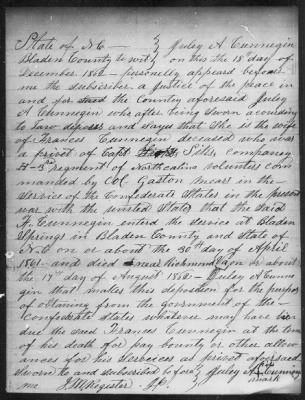 State of N C — } Juley A Cunnegin
Bladen County to wit } on this the 18th day of
December 1862 — personally appeard before
me the subscriber a Justice of the peace in
and for said the County aforesaid Juley
A Cunnegin who after being sworn acourding
to law deposes and says that She is the wife
of Frances Cunnegin deceased who was
a privet of Capt Sills, company
H — 3rd regment of North calina volunters com
manded by Col Gaston Mears in the
Service of the Confederate States in the present
war with the united States that the said
F. Cunnegin entered the service at Bladen
Springs in Bladen County and State of
N C on or about the 30th day of April
1861 and died near Richmond on or about
the 17th day of August 1862 — Juley A Cunne
gin that makes this deposition for the purpos
of claiming from the government of the —
Confederate States whatever may have bin
due the said Frances Cunnegin at the time
of his death for pay bounty or other allow
ances for his services as privet aforesaid
Sworn to and subscribed before } Juley A Cunnegin
me J. W. Register J.P. } mark